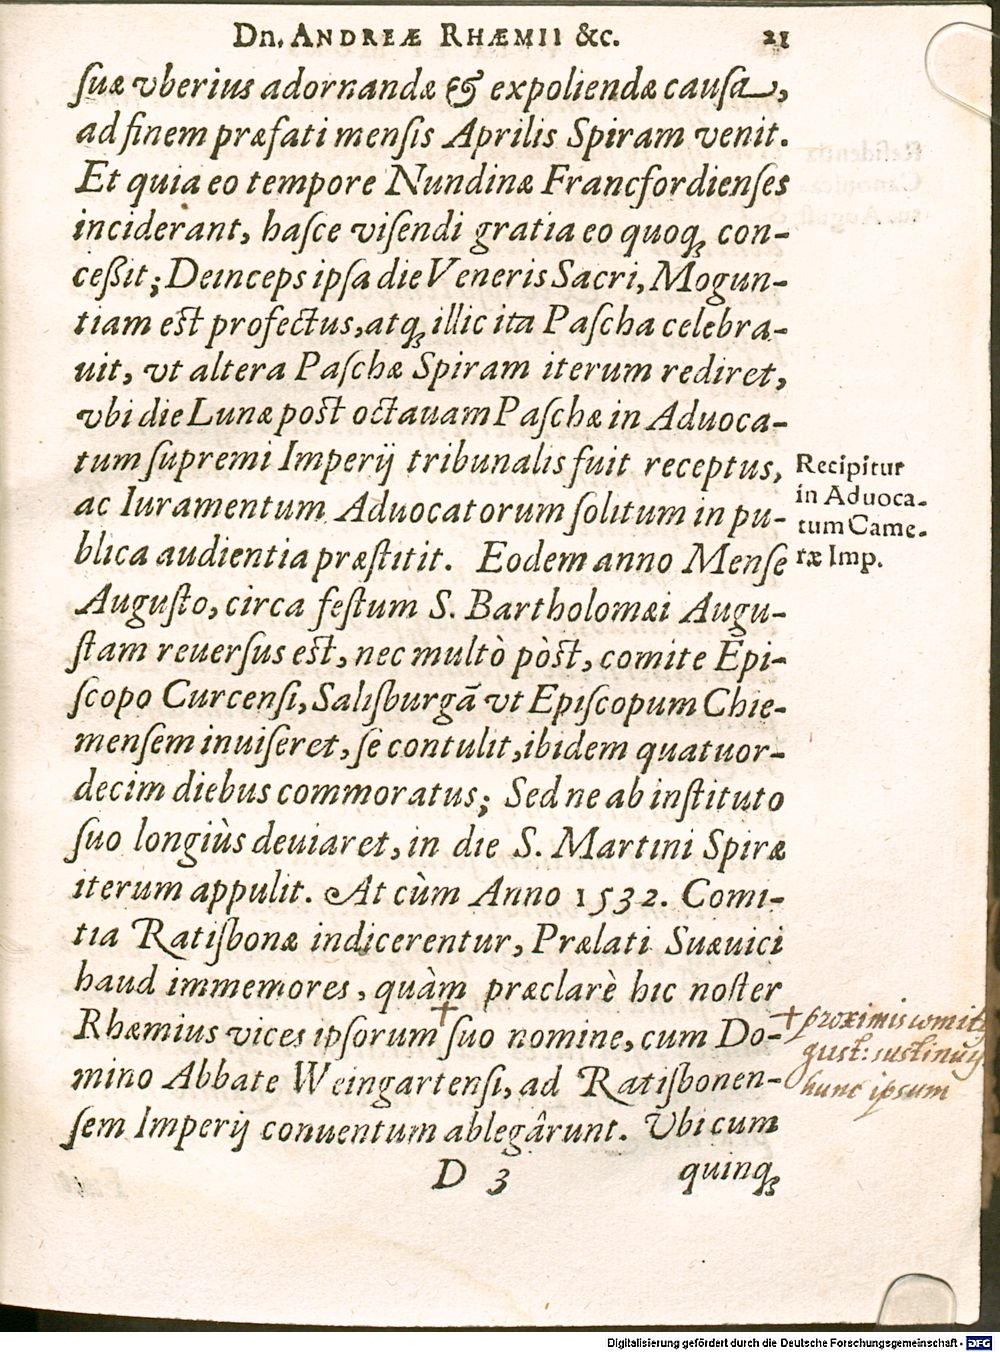 Dn. ANDREÆ RHÆMII &c. 21
suæ vberius adornandæ & expoliendæ causa,
ad finem præfati mensis Aprilis Spiram venit.
Et quia eo tempore Nundinæ Francfordienses
inciderant, hasce visendi gratia eo quoqꝫ con-
ceßit; Deinceps ipsa die Veneris Sacri, Mogun-
tiam est profectus, atqꝫ illic ita Pascha celebra-
uit, vt altera Paschæ Spiram iterum rediret,
vbi die Lunæ post octauam Paschæ in Aduoca-
tum supremi Imperij tribunalis fuit receptus,
ac Iuramentum Aduocatorum solitum in pu-
blica audientia præstitit. Eodem anno Mense
Augusto, circa festum S. Bartholomæi Augu-
stam reuersus est, nec multò pòst, comite Epi-
scopo Curcensi, Salisburgã vt Episcopum Chie-
mensem inuiseret, se contulit, ibidem quatuor-
decim diebus commoratus; Sed ne ab instituto
suo longiùs deuiaret, in die S. Martini Spiræ
iterum appulit. At cùm Anno 1532. Comi-
tia Ratisbonæ indicerentur, Prælati Suæuici
haud immemores, quàm præclarè hic noster
Rhæmius vices ipsorum † suo nomine, cum Do-
mino Abbate Weingartensi, ad Ratisbonen-
sem Imperij conuentum ablegârunt. Vbi cum
D 3 quinqꝫ
Recipitur
in Aduoca-
tum Came-
ræ Imp.
† proximis comitijs
gust: sustinuit
hunc ipsum
Digitalisierung gefördert durch die Deutsche Forschungsgemeinschaft - DFG